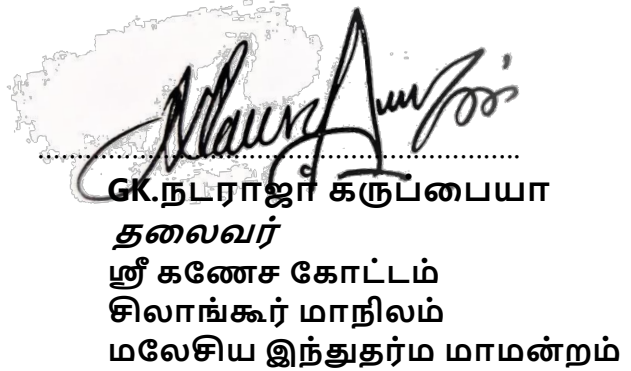 GK.நடராஜா கருப்பையா
தலைவர்
ஸ்ரீ கணேச கோட்டம்
சிலாங்கூர் மாநிலம்
மலேசிய இந்துதர்ம மாமன்றம்